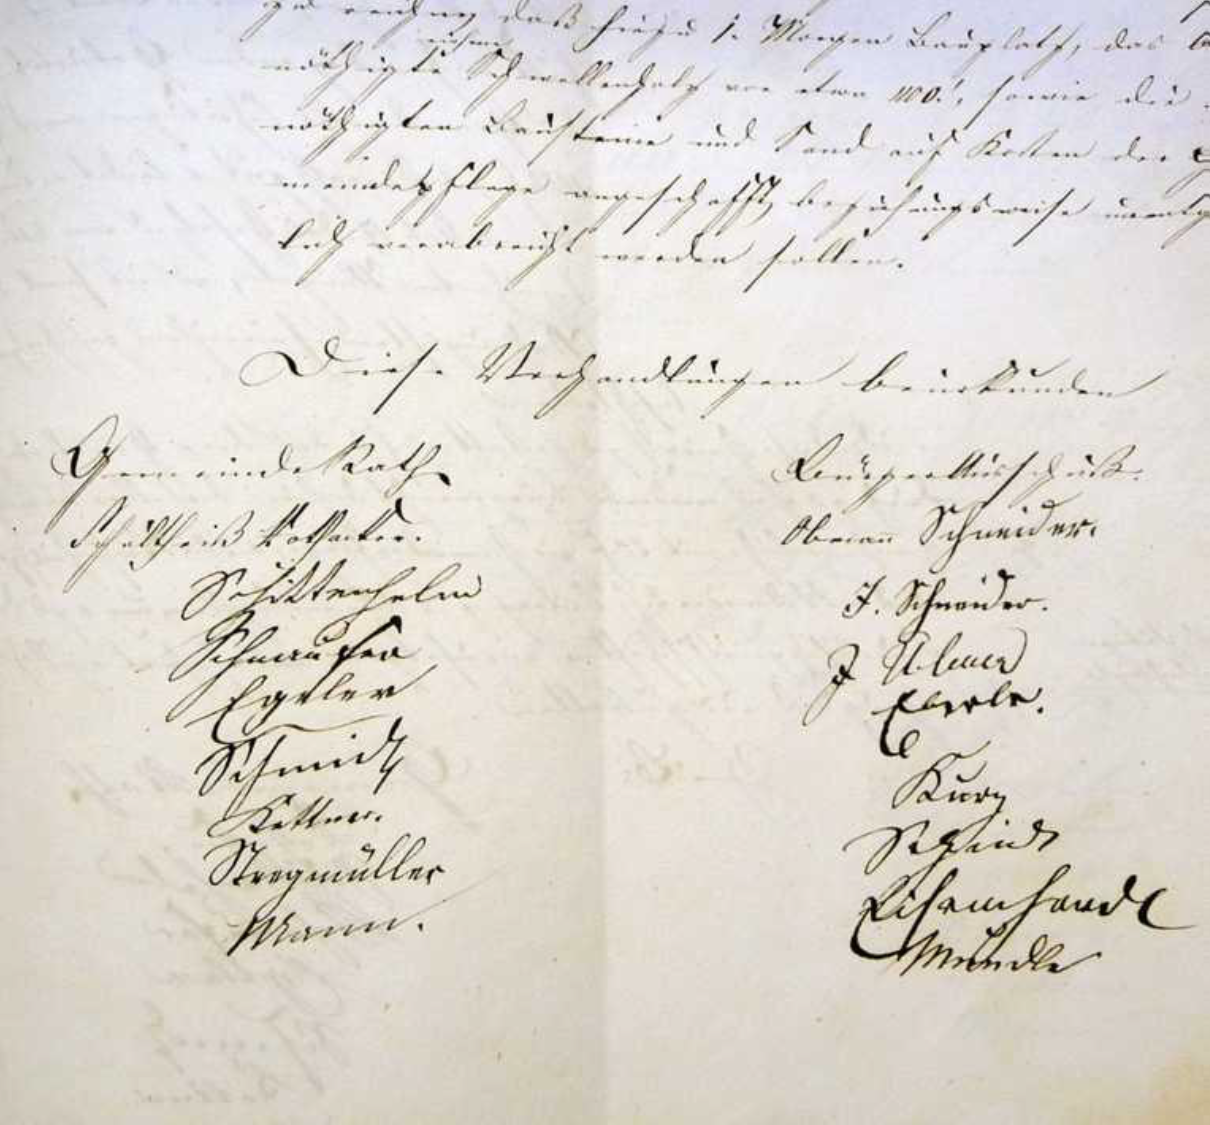 daß hiezu 1. Morgen Bauplatz, das
nöthigte Schwellenholz von etwa 1100.', sowie die
nöthigten Bausteine und Sand auf Kosten der
meindepflege angeschafft beziehungsweise unentg
lich verabreicht werden sollen.
Diese Verhandlungen beurkunden
GemeindeRath
Schultheiß
Schittenhelm
Schnaufer
Egeler
Schmidt
Kettner.
Stegmüller
Mann.
BürgerAusschuß.
Obmann Schneider.
J. Schneider.
J Ulmer
Eberle.
Kurz
Schmidt
Eisenhardt
Mündle